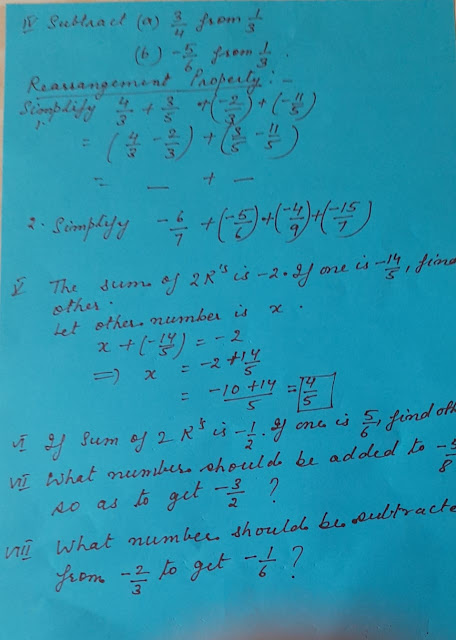 IV Subtract (a) 3/4 from 1/3
(b) -5/6 from 1/3.
Rearrangement Property :-
Simplify 4/3 + 3/5 + (-2/3) + (-11/5)
1.
= (4/3 - 2/3) + (3/5 - 11/5)
= _ + _
2. Simplify -6/7 + (-5/6) + (-4/9) + (-15/7)
V The sum of 2 R's is -2. If one is -14/5, find
other.
Let other number is x.
x + (-14/5) = -2
=> x = -2 + 14/5
= -10 + 14/5 = 4/5
VI If sum of 2 R's is -1/2. If one is 5/6, find oth
VII What number should be added to
so as to get -3/2 ?
VIII What number should be subtracte
from -2/3 to get -1/6 ?